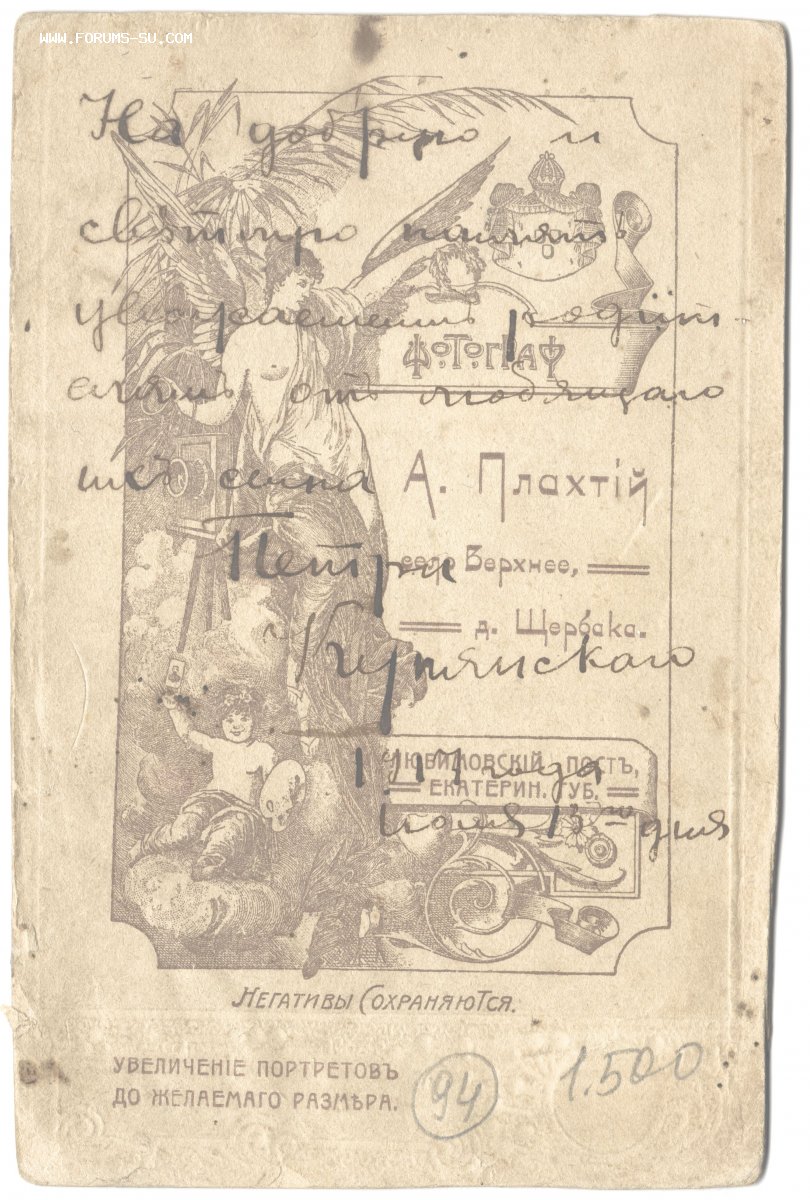 WWW.FORUMS-SU.COM
На добрую и
свѣтлую память
уважаемымъ родит-
елямъ отъ любящаго
ихъ сына
Петра
Кутянскаго
1917 года
13го дня
ФОТОГРАФ
А. Плахтiй
село Верхнее,
д. Щербака.
Любимовскiй постъ,
Екатерин. губ.
Негативы Сохраняются.
Увеличенiе портретовъ
до желаемаго размѣра.
94
1.500